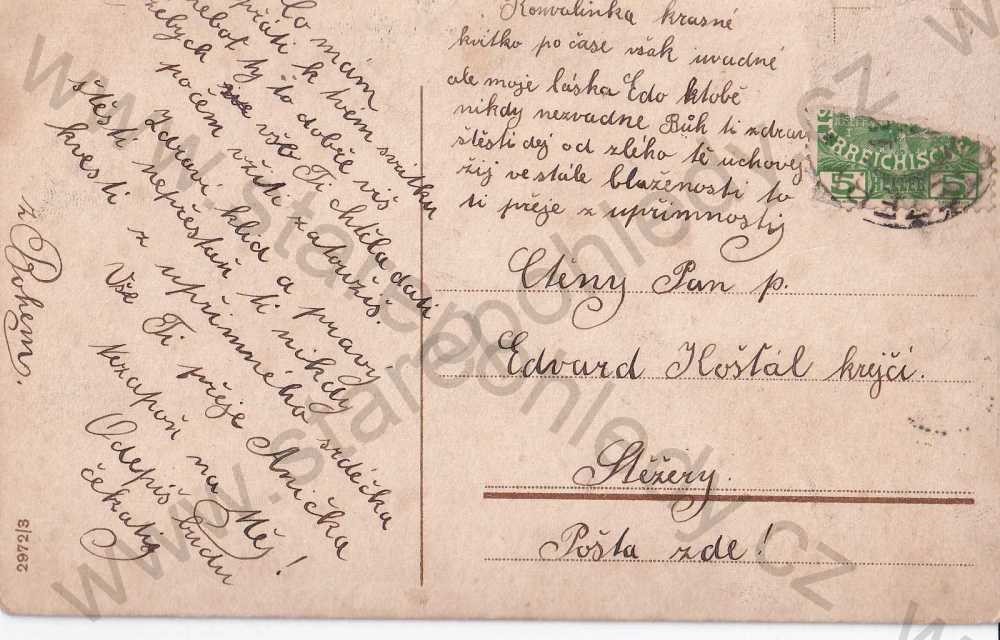 Co mám
přáti k tvém svátku
neboť ty to dobře víš
žebych vše Ti chtěla dáti
počem vžití zatoužíš.
Zdraví klid a pravý
štěstí nepřestaň ti nikdy
kvésti z upřímného srdéčka
Vše Ti přeje Anička
Nezapoň na Mě!
Odepiš budu
čekati
z Bohem.
2972/3
Konvalinka krasné
kvítko počase však uvadné
ale moje láska Edo ktobě
nikdy nezvadne Bůh ti zdraví
štěstí dej od zlého tě uchovej
žij ve stále blaženosti to
ti přeje z upřimnosti
RREICHISCH
5 HELLER 5
Ctěný Pan p.
Edvard Hošťál krejčí.
Stěžery.
Pošta zde!
www.starepohledy.cz
www.starepohledy.cz